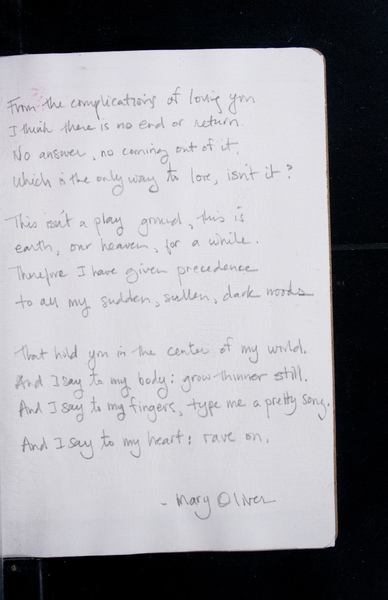 From the complications of loving you
I think there is no end or return.
No answer, no coming out of it.
Which is the only way to love, isn't it?
This isn't a play ground, this is
earth, our heaven, for a while.
Therefore I have given precedence
to all my sudden, sullen, dark moods
That hold you in the center of my world.
And I say to my body: grow thinner still.
And I say to my fingers, type me a pretty song.
And I say to my heart: rave on.
- Mary Oliver